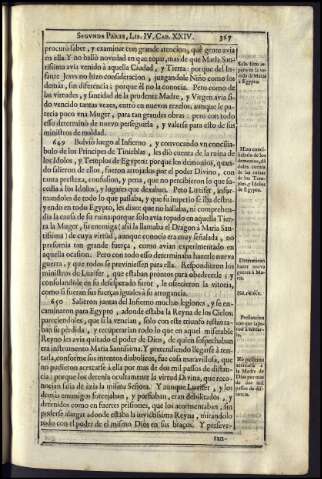 SEGUNDA PARTE, LIB. IV. CAP. XXIV. 367
procurò saber, y examinar con grande atencion, què gente avia
en ella. Y no hallò novedad en que topar, mas de que Maria San-
tissima avia venido à aquella Ciudad, y Tierra: porque del In-
fante Jesvs no hizo consideracion, juzgandole Niño como los
demàs, sin diferencia: porque èl no la conocia. Pero como de
las virtudes, y santidad de la prudente Madre, y Virgen avia si-
do vencido tantas vezes, entrò en nuevos rezelos, aunque le pa-
recia poco una Muger, para tan grandes obras: pero con todo
esso determinò de nuevo perseguirla, y valerse para esto de sus
ministros de maldad.
649 Bolviò luego al Infierno, y convocando un concilia-
bulo de los Principes de Tinieblas, les diò cuenta de la ruina de
los Idolos, y Templos de Egypto: porque los demonios, quan-
do salieron de ellos, fueron arrojados por el poder Divino, con
tanta presteza, confusion, y pena, que no percibieron lo que su-
cedia à los Idolos, y lugares que dexaban. Pero Lucifer, infor-
mandolos de todo lo que passaba, y que su imperio se iba destru-
yendo en todo Egypto, les dixo: que no hallaba, ni comprehen-
dia la causa de su ruina porque solo avia topado en aquella Tier-
ra la Muger, su enemiga (assi la llamaba el Dragon à Maria San-
tissima) de cuya virtud, aunque conocia era muy señalada, no
presumia tan grande fuerça, como avian experimentado en
aquella ocasion. Pero con todo esso determinaba hazerle nueva
guerra, y que todos se previniessen para ella. Respondieron los
ministros de Lucifer, que estaban prontos para obedecerle; y
consolandole en su desesperado furor, le ofrecieron la vitoria,
como si fueran sus fuerças iguales à su arrogancia.
650 Salieron juntas del Infierno muchas legiones, y se en-
caminaron para Egypto, adonde estaba la Reyna de los Cielos:
pareciendoles, que si la vencian, solo con este triunfo restaura-
ban su pèrdida, y recuperarian todo lo que en aquel miserable
Reyno les avia quitado el poder de Dios, de quien sospechaban
era instrumento Maria Santissima. Y pretendiendo llegarse à ten-
tarla, conforme sus intentos diabolicos, fue cosa maravillosa, que
no pudieron acercarse à ella por mas de dos mil passos de distan-
cia: porque los detenia ocultamente la virtud Divina, que reco-
nocian salia de àzia la misma Señora. Y aunque Lucifer, y los
demàs enemigos forcejaban, y porfiaban, eran debilitados, y
detenidos como en fuertes prisiones, que los atormentaban, sin
poderse alargar adonde estaba la invictissima Reyna, mirandolo
todo con el poder de el mismo Dios en sus braços. Y perseve-